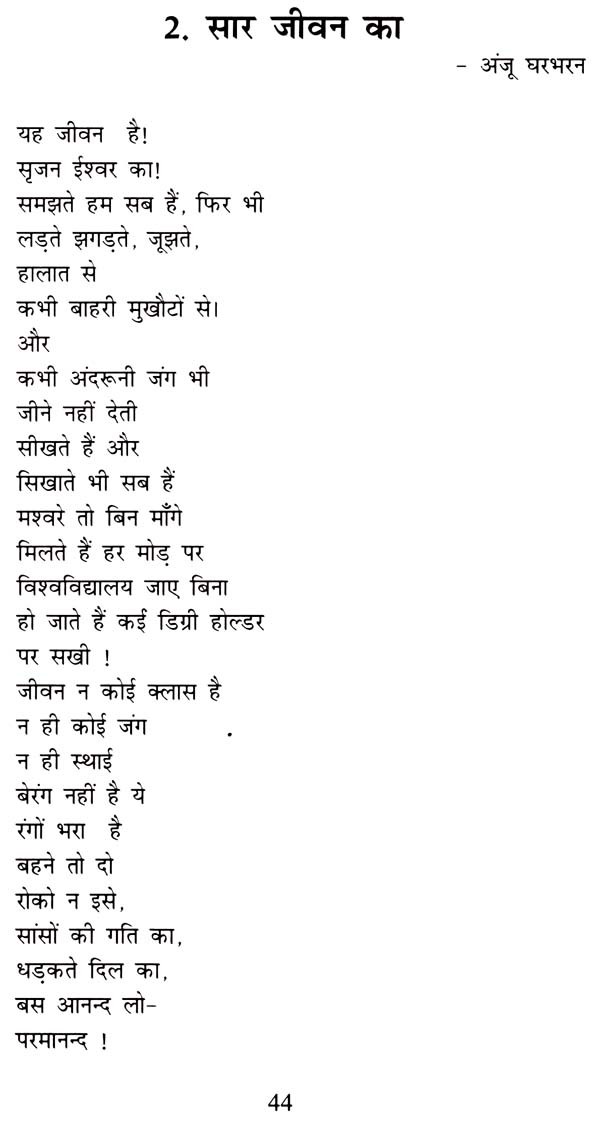 2. सार जीवन का
- अंजू घरभरन
यह जीवन है!
सृजन ईश्वर का!
समझते हम सब हैं, फिर भी
लड़ते झगड़ते, जूझते,
हालात से
कभी बाहरी मुखौटों से।
और
कभी अंदरूनी जंग भी
जीने नहीं देती
सीखते हैं और
सिखाते भी सब हैं
मश्वरे तो बिन माँगे
मिलते हैं हर मोड़ पर
विश्वविद्यालय जाए बिना
हो जाते हैं कई डिग्री होल्डर
पर सखी !
जीवन न कोई क्लास है
न ही कोई जंग
न ही स्थाई
बेरंग नहीं है ये
रंगों भरा है
बहने तो दो
रोको न इसे,
सांसों की गति का,
धड़कते दिल का,
बस आनन्द लो-
परमानन्द !
44